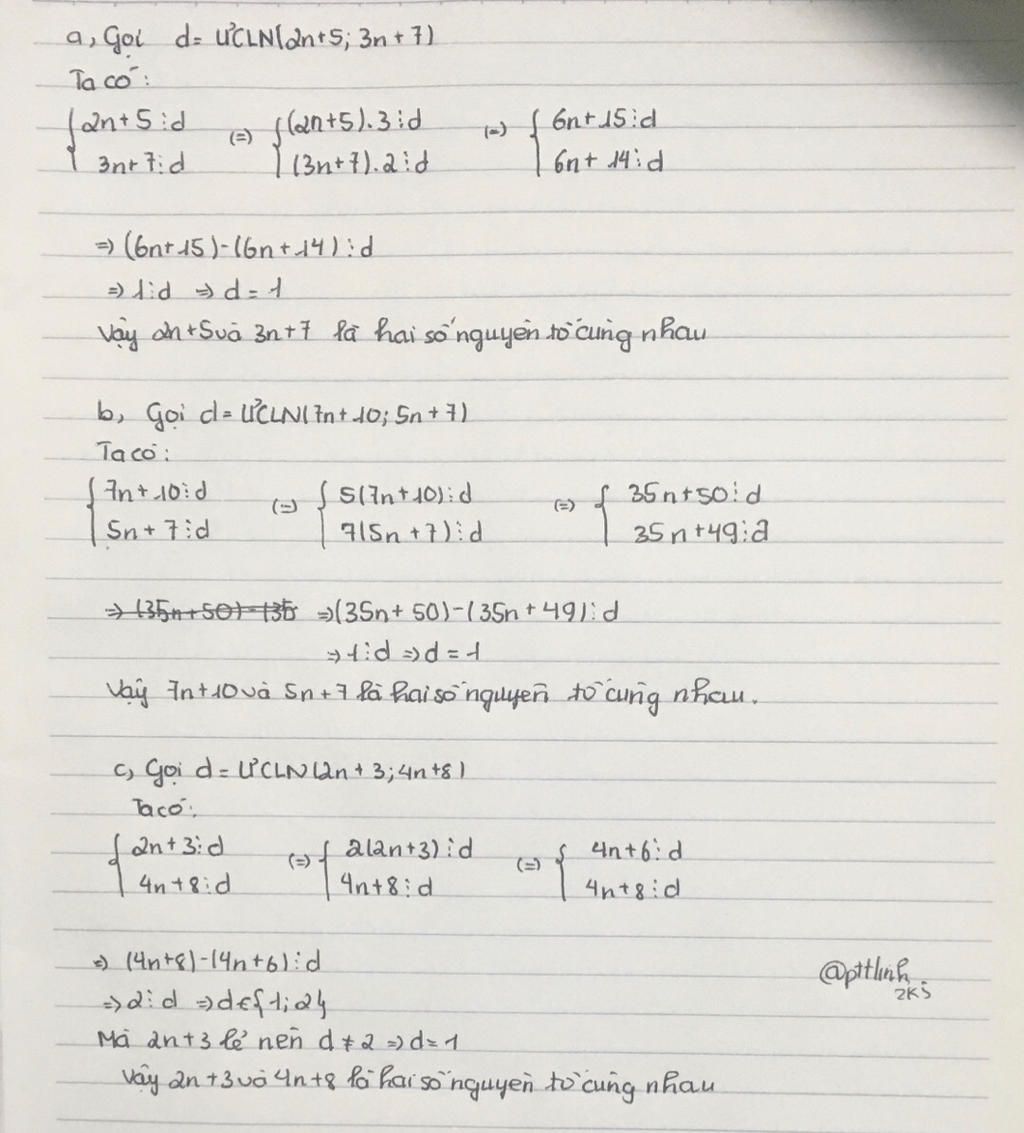 a, Gọi d = ƯCLN(2n+5; 3n+7)
Ta có:
{ 2n+5 ⋮ d (=) { (2n+5).3 ⋮ d (=) { 6n+15 ⋮ d
3n+7 ⋮ d (3n+7).2 ⋮ d 6n+14 ⋮ d
=> (6n+15)-(6n+14) ⋮ d
=> 1 ⋮ d => d = 1
Vậy 2n+5 và 3n+7 là hai số nguyên tố cùng nhau
b, Gọi d = ƯCLN(7n+10; 5n+7)
Ta có:
{ 7n+10 ⋮ d (=) { 5(7n+10) ⋮ d (=) { 35n+50 ⋮ d
5n+7 ⋮ d 7(5n+7) ⋮ d 35n+49 ⋮ d
=> (35n+50)-(35 => (35n+50)-(35n+49) ⋮ d
=> 1 ⋮ d => d = 1
Vậy 7n+10 và 5n+7 là hai số nguyên tố cùng nhau.
c, Gọi d = ƯCLN(2n+3; 4n+8)
Ta có:
{ 2n+3 ⋮ d (=) { 2(2n+3) ⋮ d (=) { 4n+6 ⋮ d
4n+8 ⋮ d 4n+8 ⋮ d 4n+8 ⋮ d
=> (4n+8)-(4n+6) ⋮ d
=> 2 ⋮ d => d ∈ {1; 2}
Mà 2n+3 lẻ nên d ≠ 2 => d = 1
Vậy 2n+3 và 4n+8 là hai số nguyên tố cùng nhau
@pttlinh
2k5